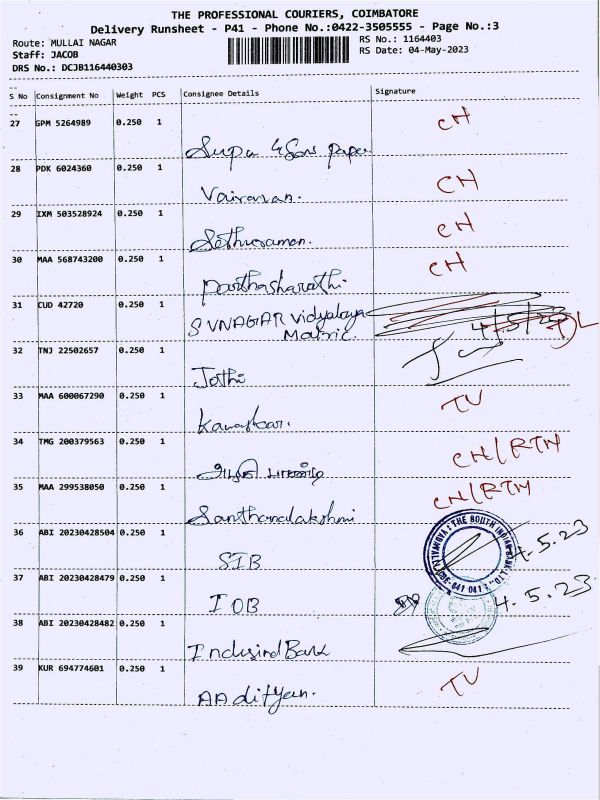 THE PROFESSIONAL COURIERS, COIMBATORE
Delivery Runsheet - P41 - Phone No.:0422-3505555 - Page No.:3
Route: MULLAI NAGAR
RS No.: 1164403
Staff: JACOB
RS Date: 04-May-2023
DRS No.: DCJB116440303
S No Consignment No Weight PCS Consignee Details Signature
27 GPM 5264989 0.250 1 CH
& Sons Paper.
28 PDK 6024360 0.250 1 CH
Vairavan.
29 IXM 503528924 0.250 1 CH
Sethuraman.
30 MAA 568743200 0.250 1 CH
Parthasharathi
31 CUD 42720 0.250 1
SVNAGAR Vidyalaya
Matric. 4/5/23 DL
32 TNJ 22502657 0.250 1
Jothi
33 MAA 600067290 0.250 1 TV
34 TMG 200379563 0.250 1 CH/RTN
35 MAA 299538050 0.250 1 CH/RTN
Santhanalakshmi
36 ABI 20230428504 0.250 1
SIB 4.5.23
THE SOUTH INDIAN BANK LTD.
37 ABI 20230428479 0.250 1
IOB 4.5.23
38 ABI 20230428482 0.250 1
Indusind Bank
39 KUR 694774601 0.250 1 TV
AAdityan.